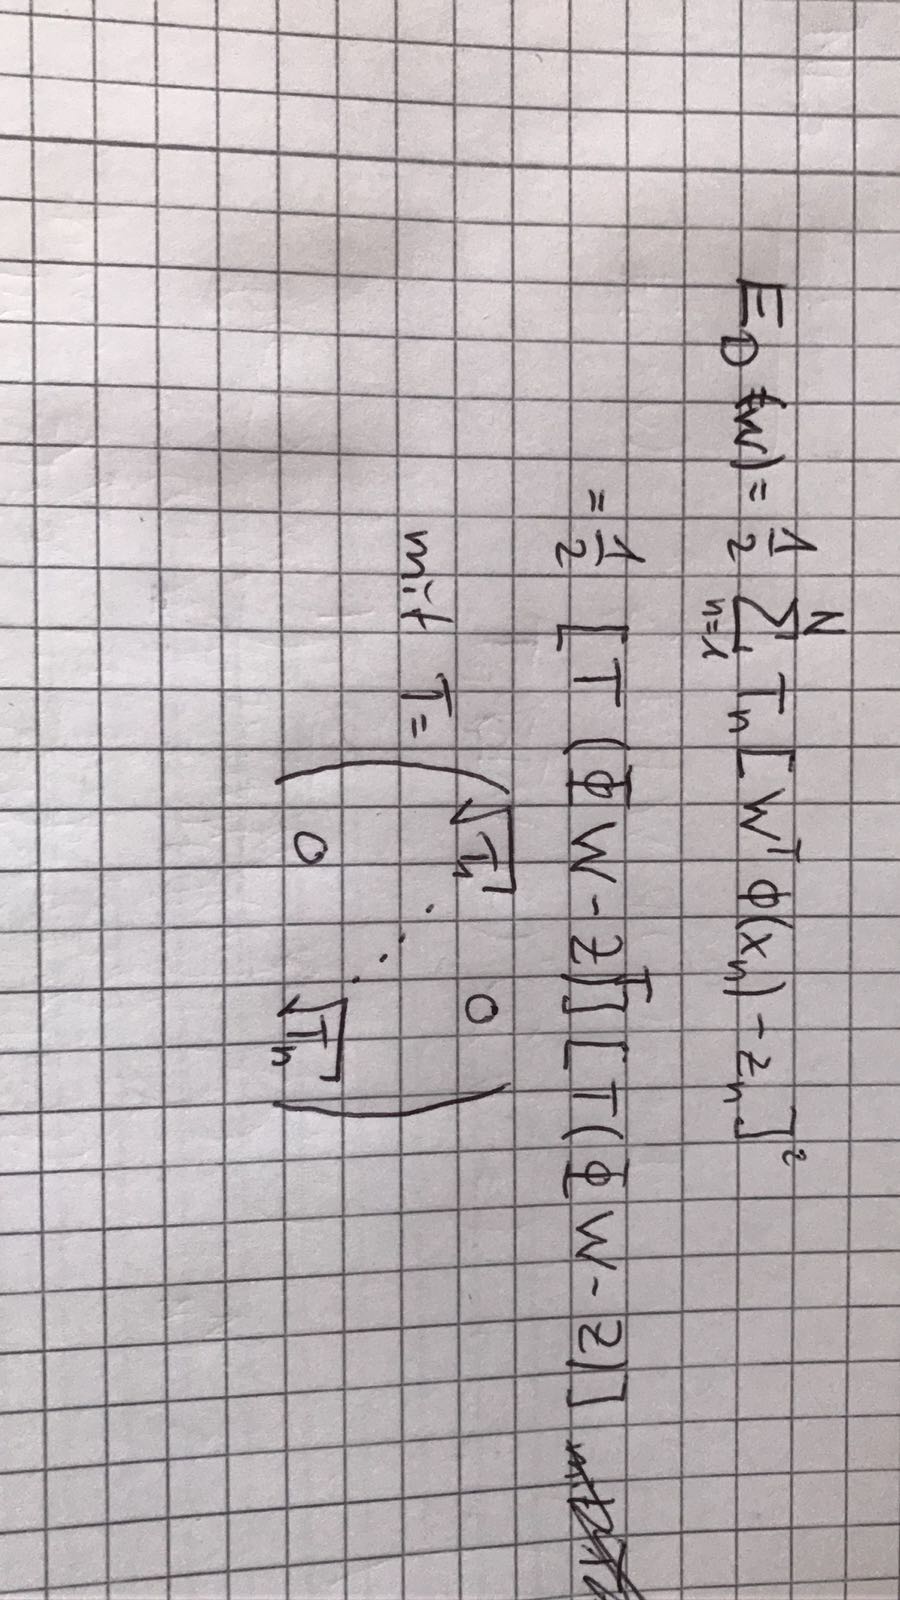 E_D(w) = 1/2 ∑_{n=1}^{N} T_n [W^T ϕ(x_n) - z_n]^2
= 1/2 [T (Φ W - Z)^T] [T(Φ W - Z)]
mit T = ( √T_1 0 ⋱ 0 √T_n )